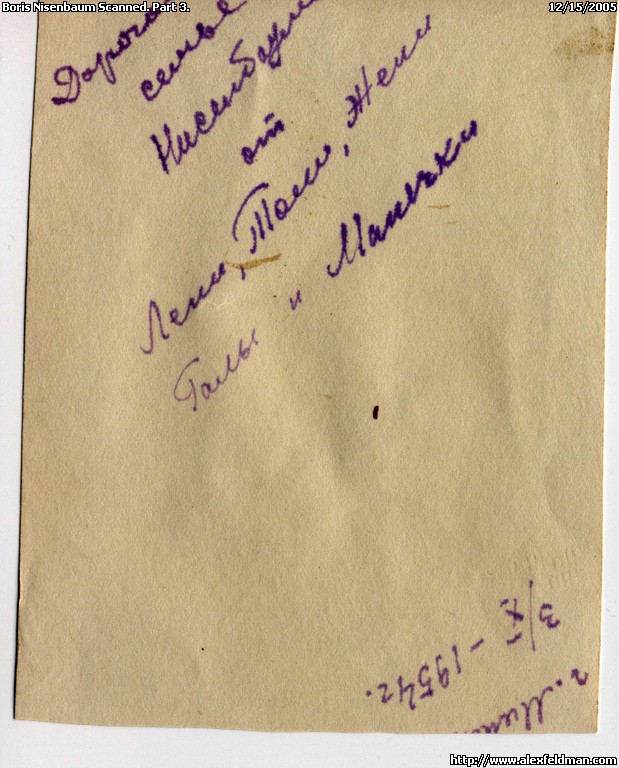 Boris Nisenbaum Scanned. Part 3.
12/15/2005
Дорого
семье
Нисенбаум
от
Лени, Толи, Жени
Гали и Манички
3/X - 1954г.
г.
http://www.alexfeldman.com